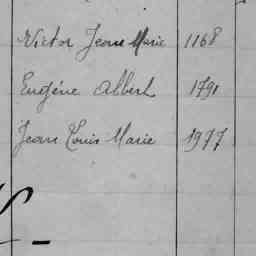 Victor Jean Marie 1168
Eugène Albert 1791
Jean Louis Marie 1977